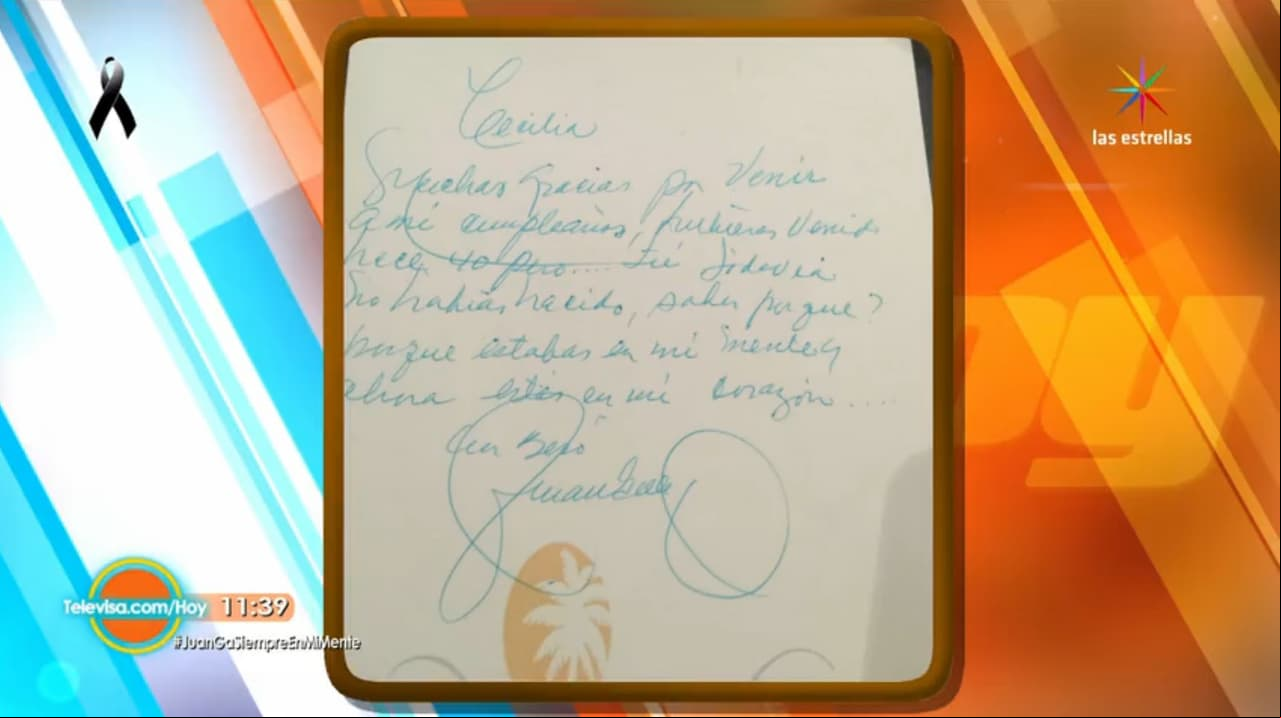 Cecilia
Muchas Gracias por Venir
a mi cumpleaños, hubieras Venido
hace 40 pero.... Tú Todavía
No habías nacido, sabes porque?
porque estabas en mi mente y
ahora estás en mi corazón....
Un Beso
Juan Gabriel
las estrellas
Hoy
Televisa.com/Hoy 11:39
#JuanGaSiempreEnMiMente